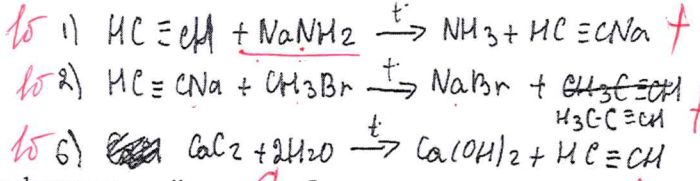 1б 1) HC ≡ CH + NaNH2 t→ NH3 + HC ≡ CNa +
1б 2) HC ≡ CNa + CH3Br t→ NaBr + CH3C≡CH
H3C-C≡CH +
1б 6) CaC2 + 2H2O t→ Ca(OH)2 + HC ≡ CH